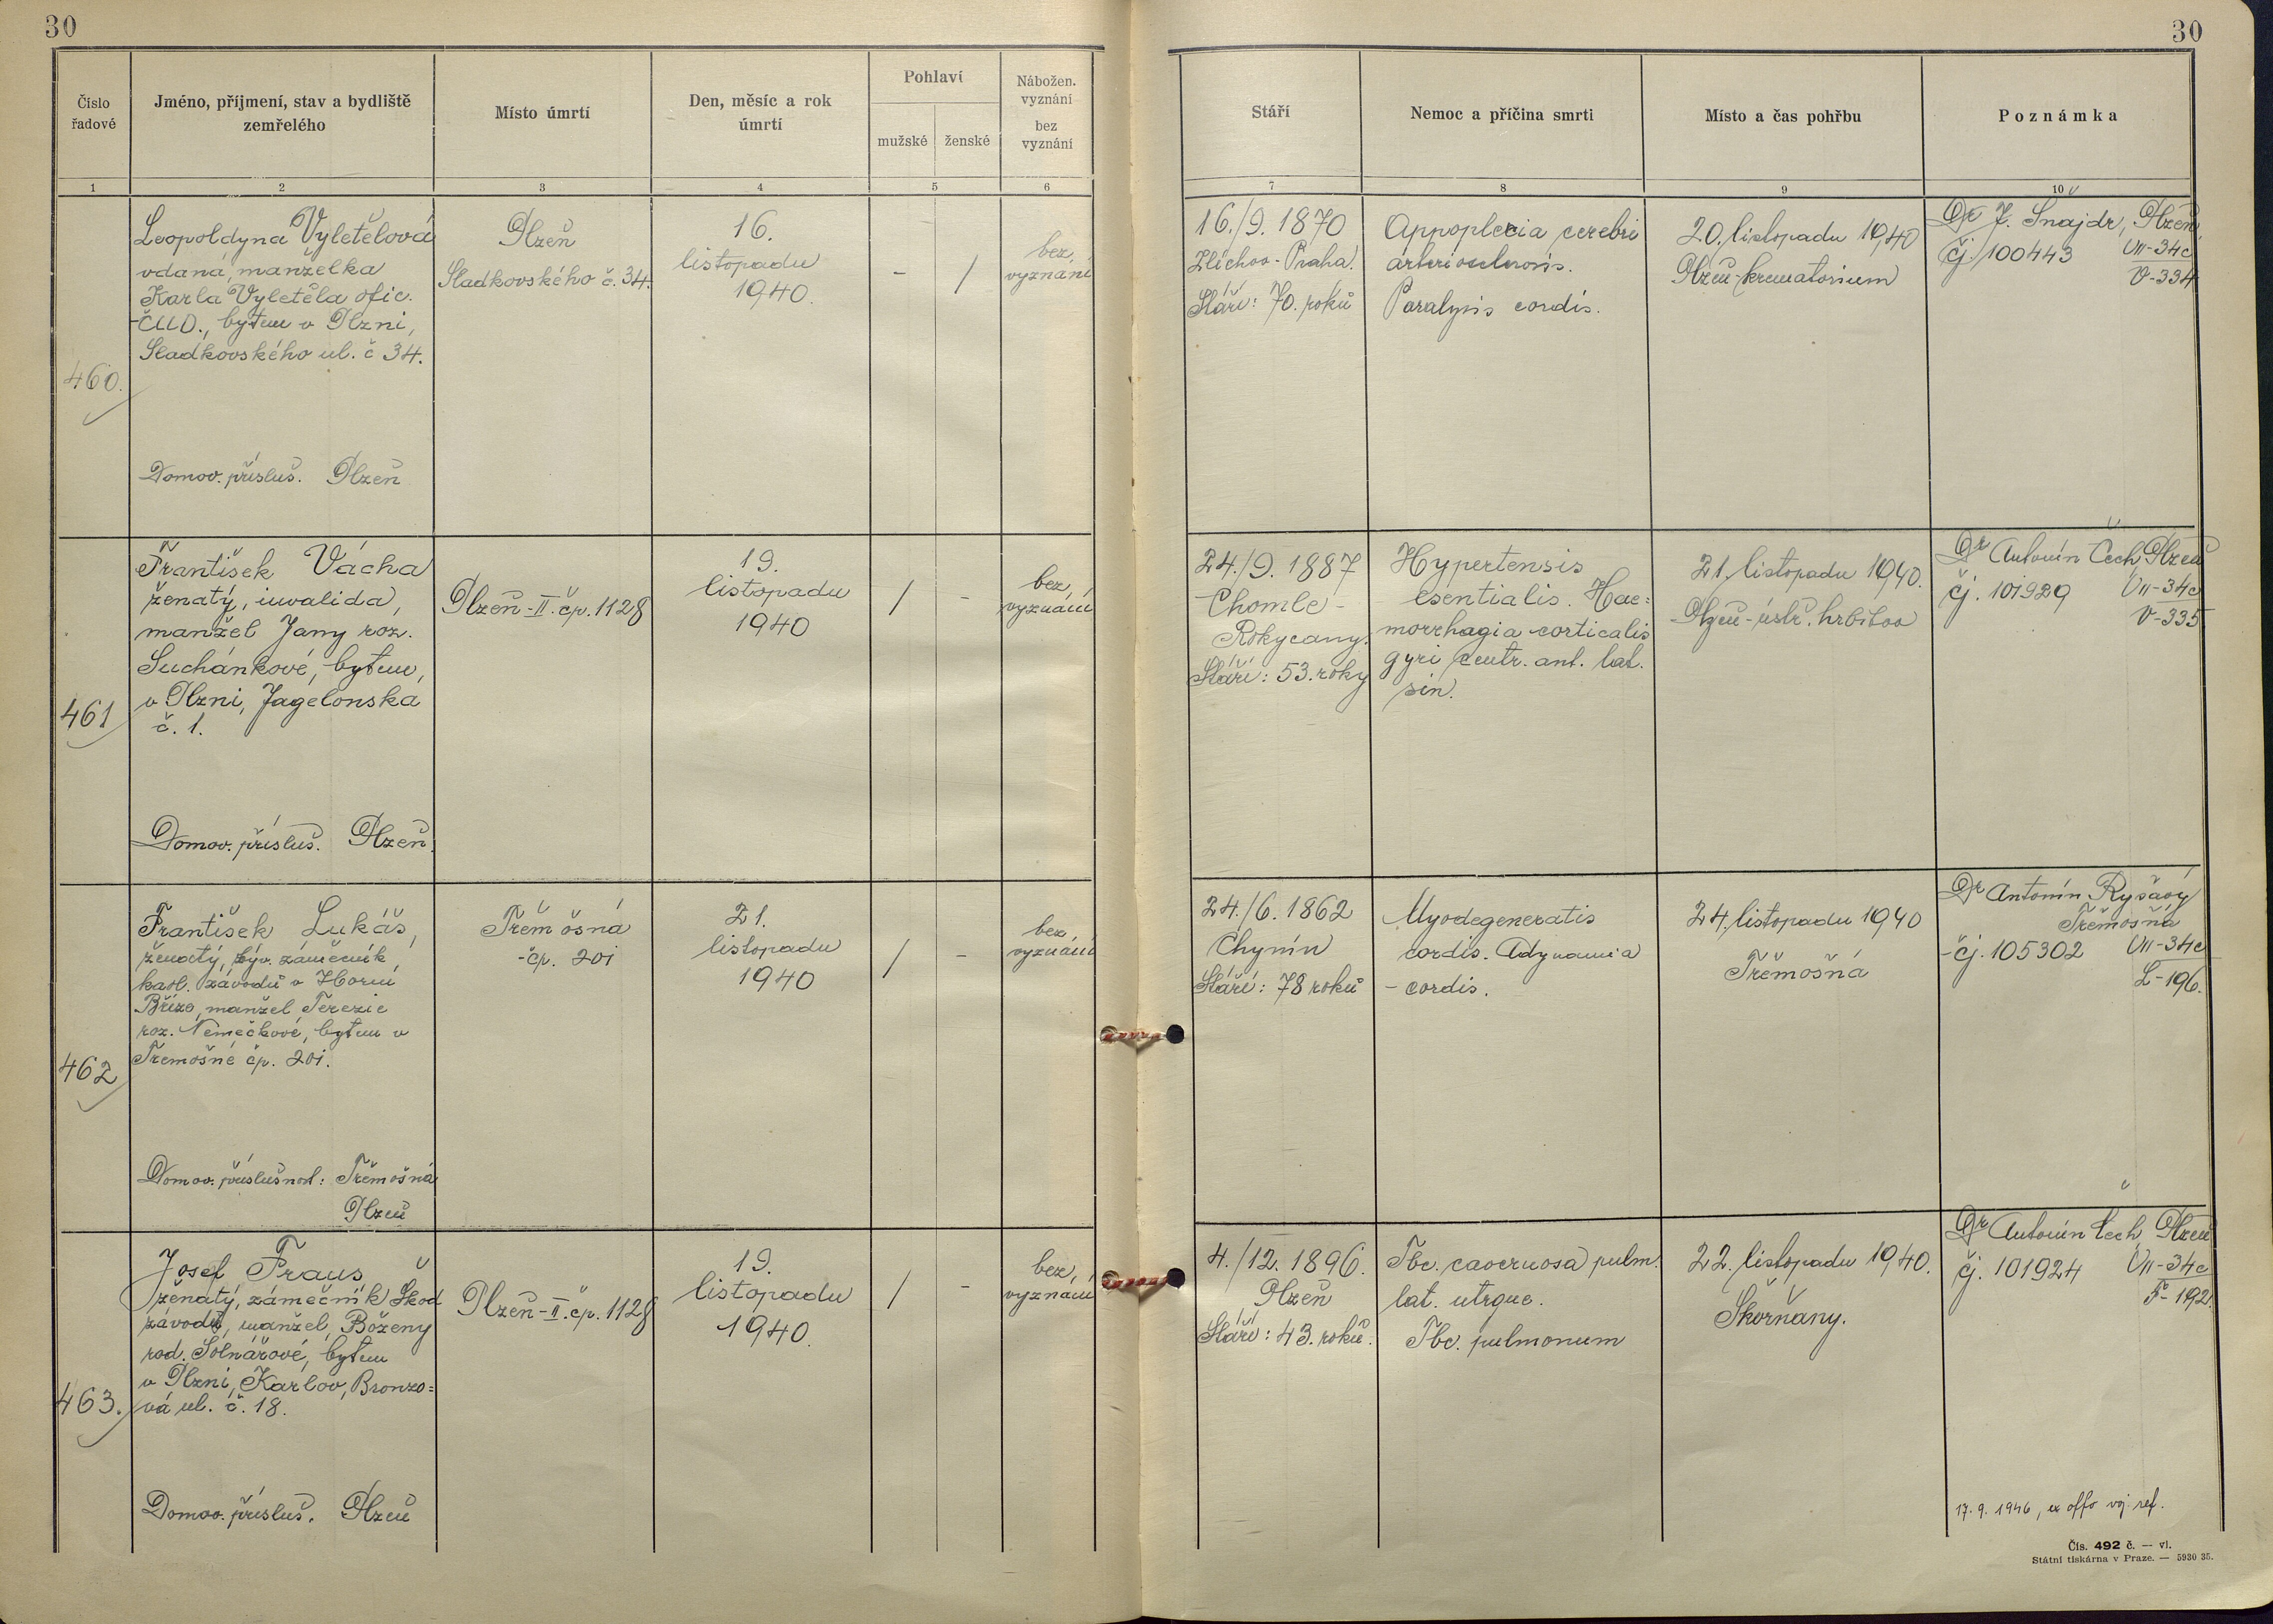 30
30
Číslo řadové
Jméno, příjmení, stav a bydliště zemřelého
Místo úmrtí
Den, měsíc a rok úmrtí
Pohlaví
mužské
ženské
Nábožen. vyznání
bez vyznání
Stáří
Nemoc a příčina smrti
Místo a čas pohřbu
Poznámka
1
2
3
4
5
6
7
8
9
10
460.
Leopoldyna Vyletělová
vdaná, manželka
Karla Vyletěla ofic.
ČMD., bytem v Plzni,
Sladkovského ul. č 34.
Domov. přísluš. Plzeň
Plzeň
Sladkovského č. 34.
16.
listopadu
1940.
-
/
bez,
vyznání
16./9. 1870
Zlíchov-Praha.
Stáří: 70. roků
Appoplexia cerebri
arteriosclerosis.
Paralysis cordis.
20. listopadu 1940
Plzeň-krematorium
Dr J. Šnajdr, Plzeň,
čj. 100443
VII-34c
V-334
461
František Vácha
ženatý, invalida,
manžel Jany roz.
Suchánkové, bytem,
v Plzni, Jagelonska
č. 1.
Domov. přísluš. Plzeň.
Plzeň-II. čp. 1128
19.
listopadu
1940
/
-
bez,
vyznání
24./9. 1887
Chomle-
Rokycany.
Stáří: 53. roky
Hypertensis
esentialis. Hae=
morrhagia corticalis
gyri centr. ant. lat.
sin.
21. listopadu 1940.
Plzeň-ústř. hřbitov
Dr Antonín Čech, Plzeň
čj. 101929
VII-34c
V-335
462
František Lukáš,
ženatý, býv. zámečník,
kaol. závodů v Horní
Bříze, manžel Terezie
roz. Němečkové, bytem v
Třemošné čp. 201.
Domov. příslušnost: Třemošná
Plzeň
Třemošná
-čp. 201
21.
listopadu
1940
/
-
bez,
vyznání
24./6. 1862
Chynín
Stáří: 78 roků
Myodegeneratis
cordis. Adynamia
-cordis.
24. listopadu 1940
Třemošná
Dr Antonín Ryšavý
Třemošná
-čj. 105302
VII-34c
L-196.
463.
Josef Fraus,
ženatý, zámečník Škod
závodů, manžel Boženy
rod. Solnářové, bytem
v Plzni, Karlov, Bronzo=
vá ul. č. 18.
Domov. přísluš. Plzeň
Plzeň-II. čp. 1128
19.
listopadu
1940.
/
-
bez,
vyznání
4./12. 1896.
Plzeň
Stáří: 43. roků.
Tbc. cavernosa pulm.
lat. utrque.
Tbc. pulmonum
22. listopadu 1940.
Skorňany.
Dr Antonín Čech, Plzeň
čj. 101924
VII-34c
F-192.
17. 9. 1946, ex offo voj. ref.
Čís. 492 č. — vl.
Státní tiskárna v Praze. — 5930 35.